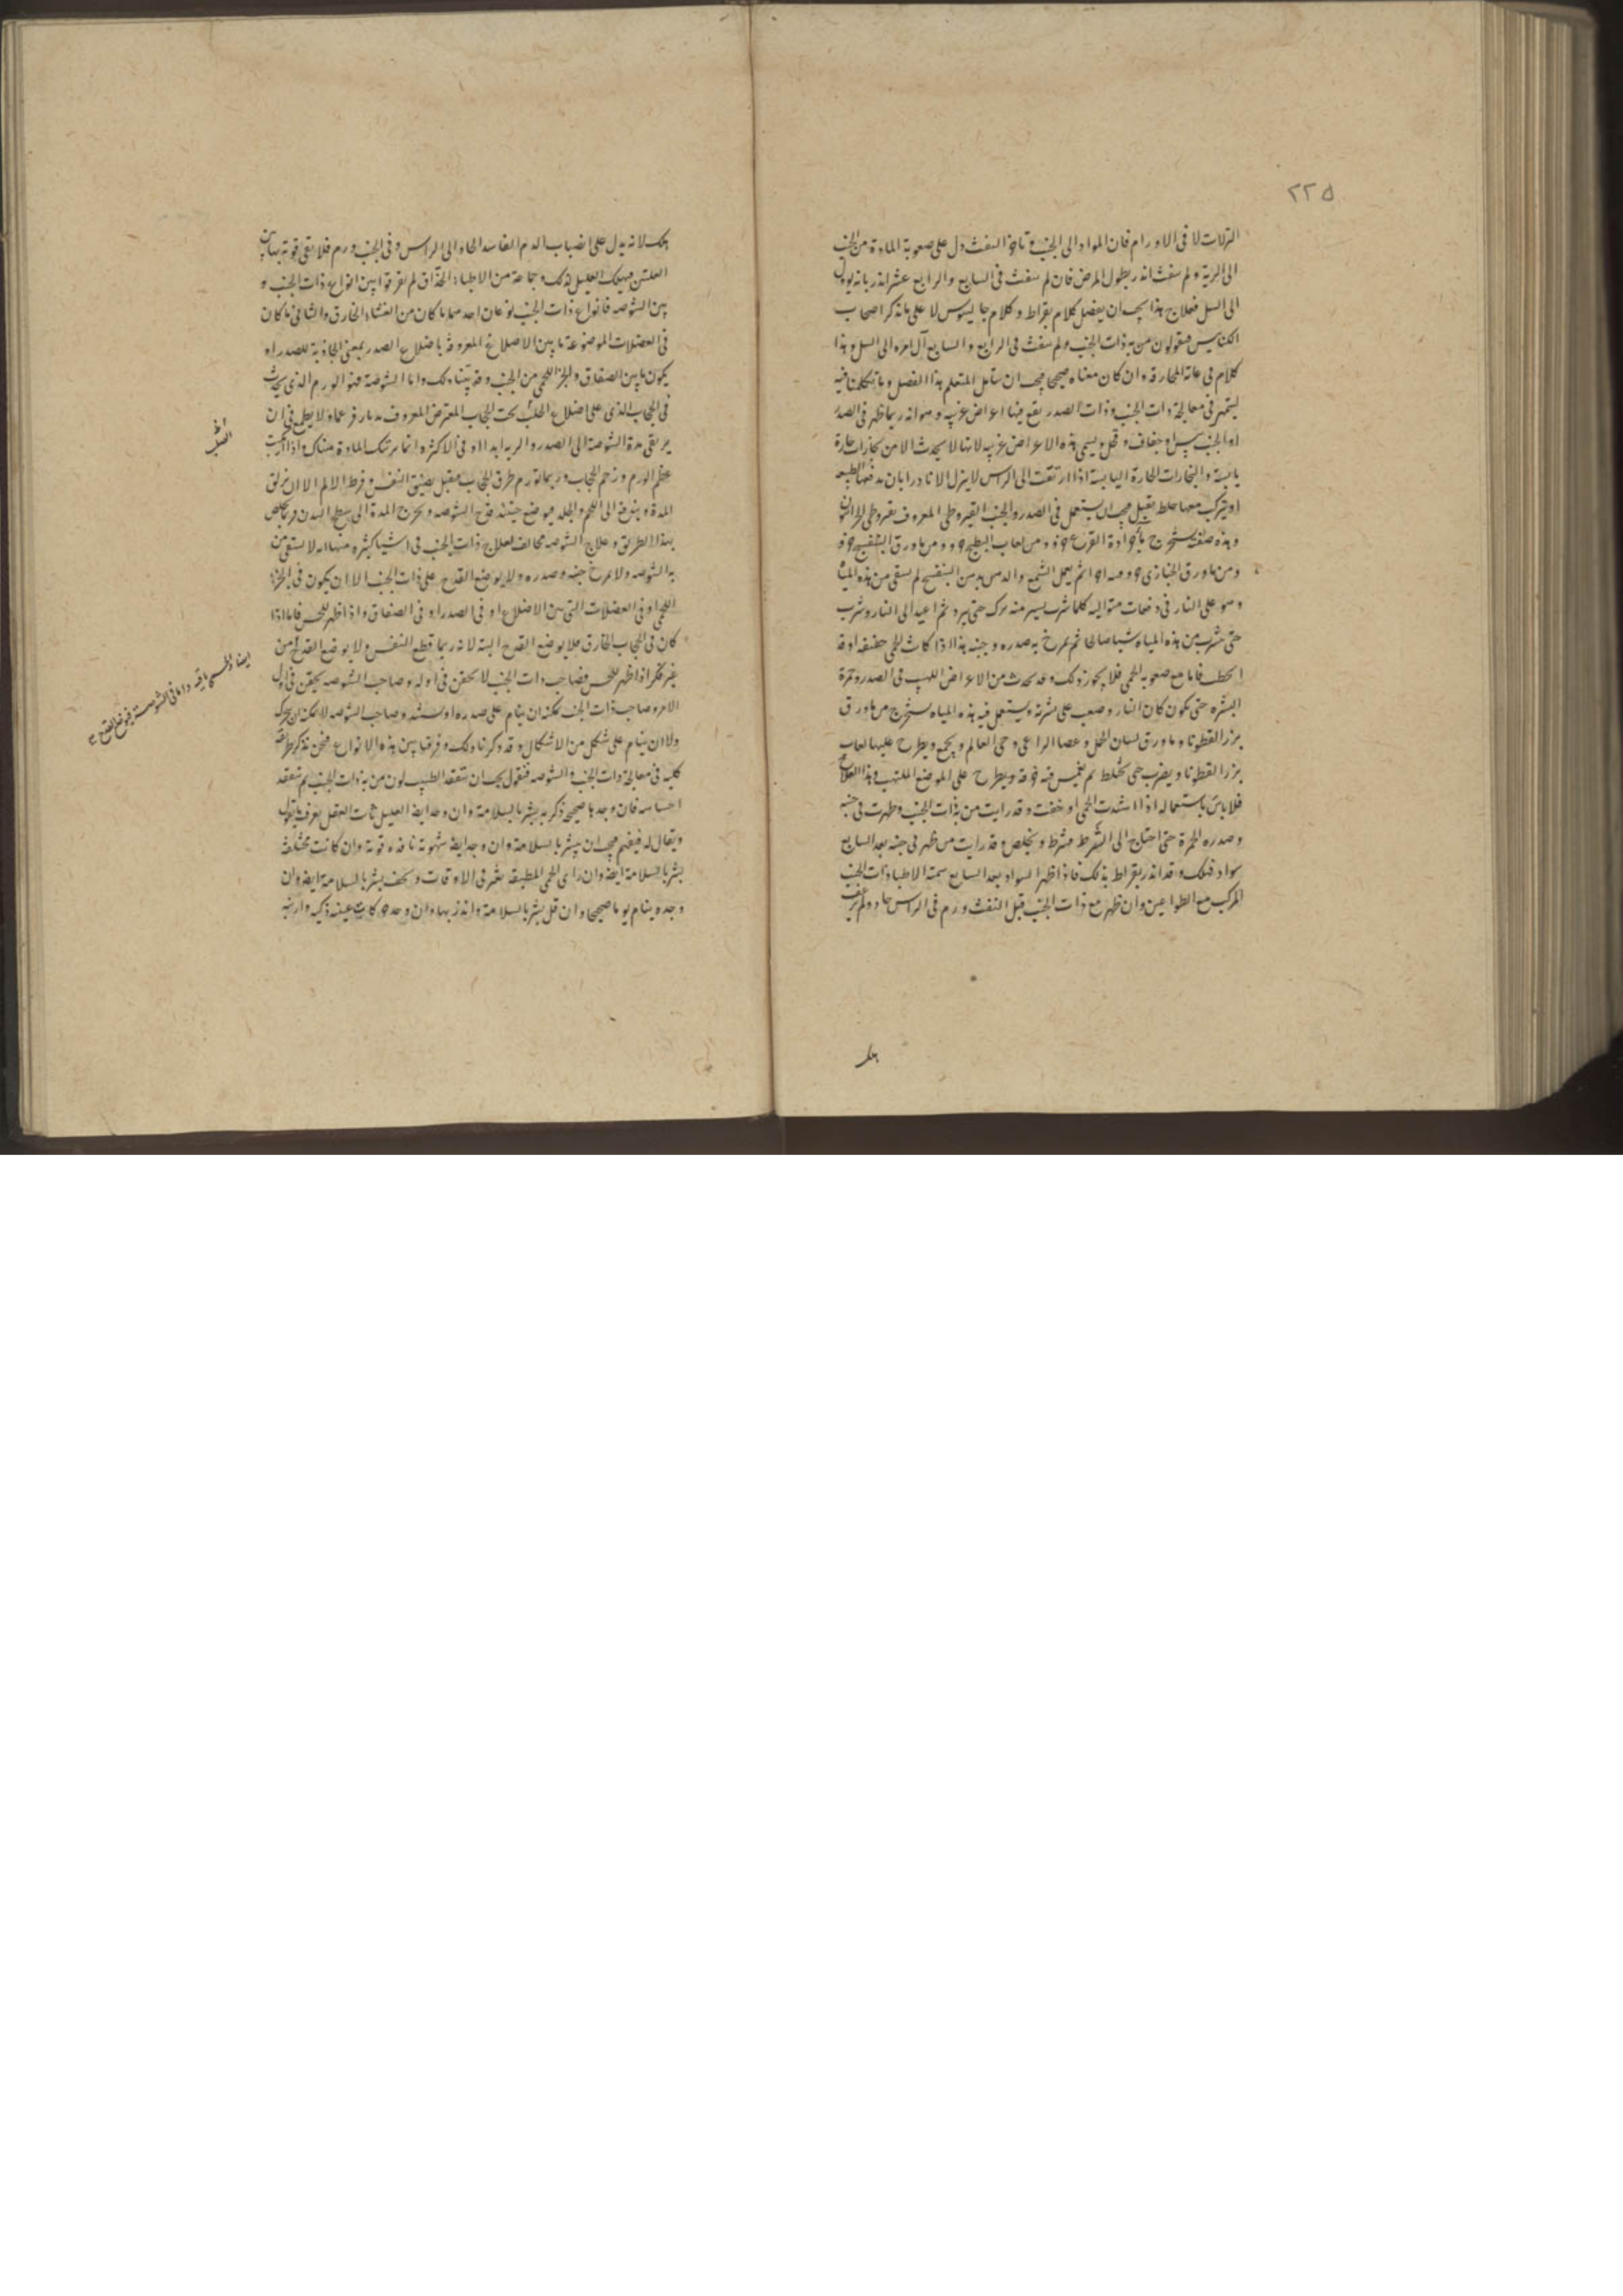 ٢٢٥
النزلات لا فى الاورام فان المواد الى الجنب وتاخر النفث دل على صعوبة المادة من الجنب
الى الرية ولم ينفث انذر بطول المرض فان لم ينفث فى السابع والرابع عشر انذر بانه يؤول
الى السل فعلاج هذا يجب ان يفضل كلام بقراط وكلام جالينوس لا على ما يذكر اصحاب
الكنانيس فيقولون من به ذات الجنب ولم ينفث فى الرابع والسابع آل امره الى السل وهذا
كلام فى غاية المجازفة وان كان معناه صحيحا فيجب ان يتأمل المتعلم هذا الفصل وما تكلمنا فيه
ليتمهر فى معالجة ذات الجنب وذات الصدر يقع فيها اعراض غريبه وهو انه ربما ظهر فى الصدر
او الجنب يبس او جفاف وقحل ويسمى هذه الاعراض غريبه لانها لا يحدث الا من بخارات حارة
يابسة والبخارات الحارة اليابسة اذا ارتقت الى الراس لا ينزل الا نادرا بان يدفعها الطبيعه
او يتركب معها خلط ثقيل فيجب ان يستعمل فى الصدر والجنب القيروطى المعروف بقيروطى
وهذه صفته يستخرج ماء جرادة القرع ومن لعاب البطيخ ومن ماء ورق البنفسج
ومن ماء ورق الخبازى ثم يعمل الشمع والدهن بدهن البنفسج ثم يسقى من هذه المياه
وهو على النار فى دفعات متواليه كلما شرب يسير منه ترك حتى يبرد ثم اعيد الى النار وشرب
حتى شرب من هذه المياه شيا صالحا ثم يمرخ به صدره وجنبه هذا اذا كانت الحمى خفيفه او قد
انحطت فاما مع صعوبه الحمى فلا يجوز ذلك وقد يحدث من الاعراض اللهيب فى الصدر وحمرة
البشره حتى يكون كان النار وضعت على بشرته ويستعمل فيه هذه المياه يستخرج من ماء ورق
بزر القطونا وماء ورق لسان الحمل وعصا الراعى وحى العالم ويجمع ويطرح عليها لعاب
بزر القطونا ويضرب حتى يختلط ثم يغمس فيه خرقة ويطرح على الموضع الملتهب وهذا العلاج
فلا باس باستعماله اذا اشتدت الحمى او خفت وقد رايت من به ذات الجنب وظهرت فى جنبه
وصدره الحمرة حتى احتاج الى الشرط فشرط وتخلص وقد رايت من ظهر فى جنبه بعد السابع
سواد فهلك وقد انذر بقراط بذلك فاذا ظهر السواد بعد السابع سمته الاطباء ذات الجنب
المركب مع الطواعين وان ظهر مع ذات الجنب قبل النفث ورم فى الراس حار ولم يرعف
هلك
هلك لانه يدل على انصباب الدم الفاسد الحاد الى الراس وفى الجنب ورم فلا يفى قوته بهاتين
العلتين فيهلك العليل لذلك وجماعة من الاطباء الحذاق لم يفرقوا بين انواع ذات الجنب و
بين الشوصه فانواع ذات الجنب نوعان احدهما ما كان من الغشاء الخارق والثانى ما كان
فى العضلات الموضوعة ما بين الاضلاع المعروفة باضلاع الصدر بمعنى المجاذبة للصدر او
يكون ما بين الصفاق والجزء اللحمى من الجنب وقد بينا ذلك واما الشوصة فهو الورم الذى يحدث
فى الحجاب الذى على اضلاع الخلف تحت الحجاب المعترض المعروف بديافرغما ولا يطمع فى ان
يرتقى مدة الشوصة الى الصدر والريه ابدا او فى الاكثر وانما يرتبك المادة هناك واذا
عظم الورم وزحم الحجاب وربما تورم طرف الحجاب فيقتل بضيق النفس وفرط الالم الا ان يزلق
المدة وينزع الى اللحم والجلد فيوضع حينئذ قدح الشوصه ويخرج المدة الى سطح البدن فربما يخلص
بهذا الطريق وعلاج الشوصه مخالف لعلاج ذات الجنب فى اشيا كثيره منها انه لا يسقى من
به الشوصه ولا يمرخ جنبه وصدره ولا يوضع القدح على ذات الجنب الا ان يكون فى الجزء
اللحمى او فى العضلات التى بين الاضلاع او فى الصدر او فى الصفاق واذا ظهر للحس فاما اذا
كان فى الحجاب الخارق فلا يوضع القدح البتة لانه ربما قطع النفس ولا يوضع القدح من
غير فكر اذا ظهر للحس فصاحب ذات الجنب لا يحقن فى اوله وصاحب الشوصه يحقن فى اول
الامر وصاحب ذات الجنب يمكنه ان ينام على صدره او يستند وصاحب الشوصه لا يمكنه ان يتحرك
ولا ان ينام على شكل من الاشكال وقد ذكرنا ذلك وفرقنا بين هذه الانواع فنحن نذكر طريقه
كليه فى معالجة ذات الجنب والشوصه فنقول يجب ان يتفقد الطبيب لون من به ذات الجنب ثم يتفقد
احساسه فان وجدها صحيح ذكر به يبشر بالسلامة وان وجد ايضا العليل ثابت العقل يعرف ما يقول
ويقال له فيفهم فيجب ان يبشر بالسلامة وان وجد ايضا شهوته نافذه قوية وان كانت مختلفة
بشر بالسلامة ايضا وان راى الحمى المطبقه تفتر فى الاوقات وتخف بشر بالسلامة ايضا وان
وجده ينام نوما صحيحا وان قل بشر بالسلامة وانذر بها وان وجد حركات عينيه ذكيه وارنبه